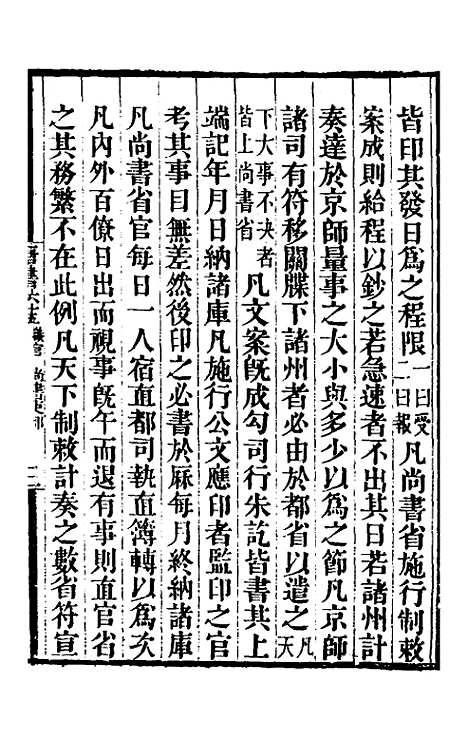 皆印其發日爲之程限一曰受二曰報凡尚書省施行制敕
案成則給程以鈔之若急速者不出其日若諸州計
奏達於京師量事之大小與多少以爲之節凡京師
諸司有符移關牒下諸州者必由於都省以遣之凡天
下大事不決者皆上尚書省凡文案既成勾司行朱訖皆書其上
端記年月日納諸庫凡施行公文應印者監印之官
考其事目無差然後印之必書於厤每月終納諸庫
凡尚書省官每日一人宿直都司執直簿轉以爲次
凡內外百僚日出而視事既午而退有事則直官省
之其務繁不在此例凡天下制敕計奏之數省符宣